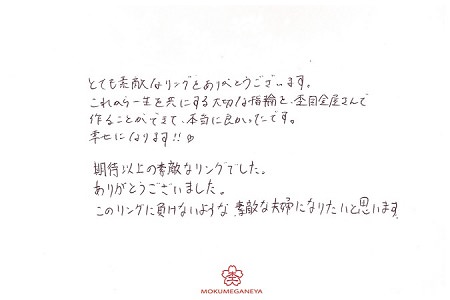 とても素敵なリングをありがとうございます。
これから一生を共にする大切な指輪を、杢目金屋さんで
作ることができて、本当に良かったです。
幸せになります!!♡
期待以上の素敵なリングでした。
ありがとうございました。
このリングに負けないような素敵な夫婦になりたいと思います
杢
MOKUMEGANEYA